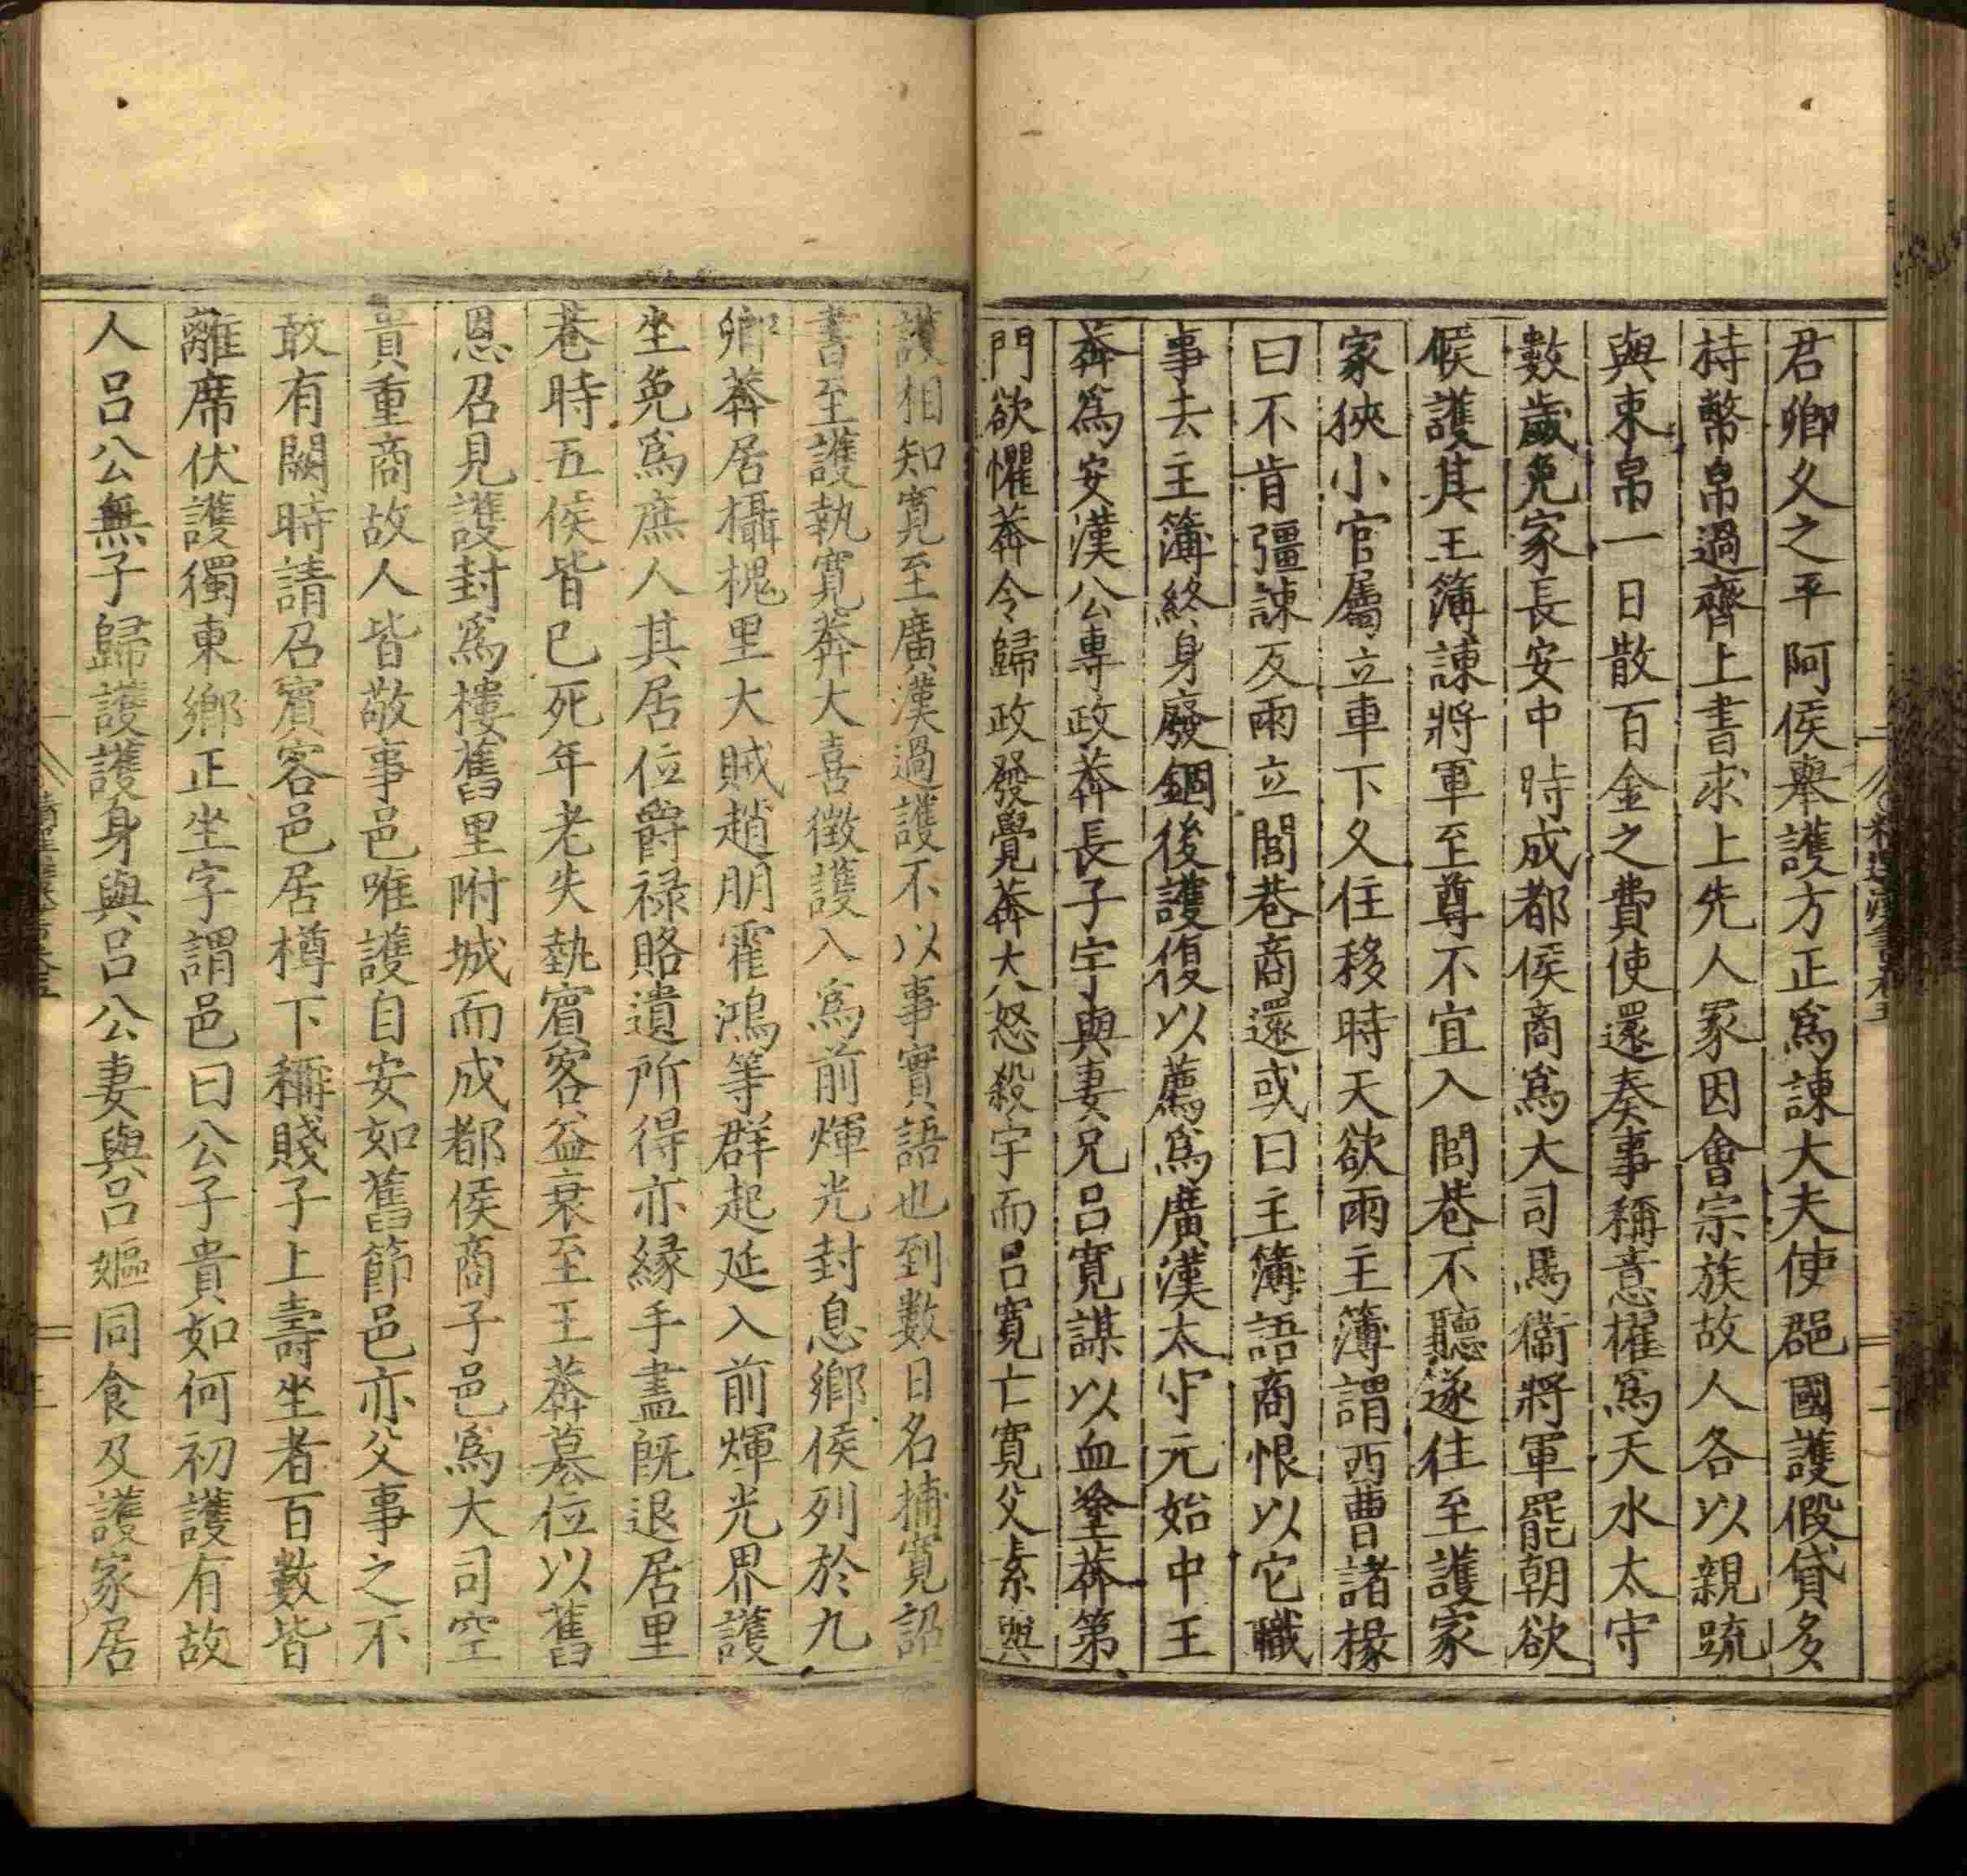 君卿久之平阿侯舉護方正爲諫大夫使郡國護假貸多
持幣帛過齊上書求上先人冢因會宗族故人各以親疏
與束帛一日散百金之費使還奏事稱意擢爲天水太守
數歲免家長安中時成都侯商爲大司馬衛將軍罷朝欲
候護其主簿諫將軍至尊不宜入閭巷不聽遂往至護家
家狹小官屬立車下久住移時天欲雨主簿謂西曹諸掾
曰不肯彊諫反雨立閭巷商還或曰主簿語商恨以它職
事去主簿終身廢錮後護復以薦爲廣漢太守元始中王
莽爲安漢公專政莽長子宇與妻兄呂寬謀以血塗莽第
門欲懼莽令歸政發覺莽大怒殺宇而呂寬亡寬父素與
護相知寬至廣漢過護不以事實語也到數日名捕寬詔
書至護執寬莽大喜徵護入爲前煇光封息鄉侯列於九
卿莽居攝槐里大賊趙朋霍鴻等群起延入前煇光界護
坐免爲庶人其居位爵祿賂遺所得亦緣手盡既退居里
巷時五侯皆已死年老失執賓客益衰至王莽篡位以舊
恩召見護封爲樓舊里附城而成都侯商子邑爲大司空
貴重商故人皆敬事邑唯護自安如舊節邑亦父事之不
敢有闕時請召賓客邑居樽下稱賤子上壽坐者百數皆
離席伏護獨東鄉正坐字謂邑曰公子貴如何初護有故
人呂公無子歸護護身與呂公妻與呂嫗同食及護家居